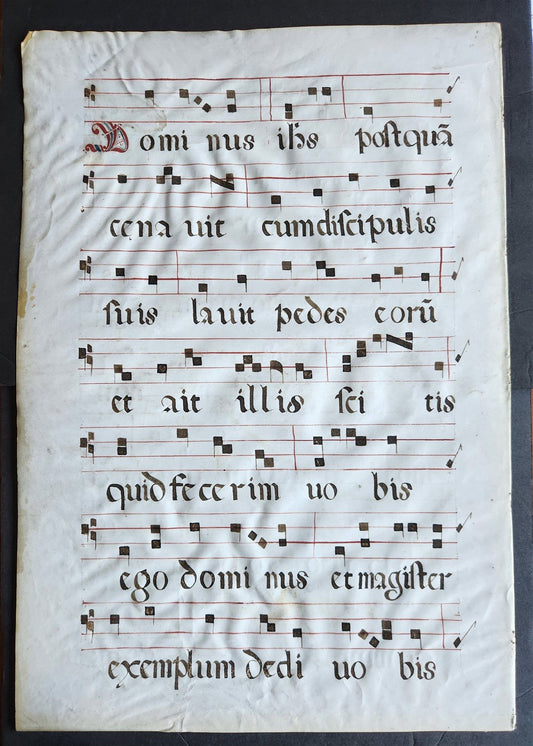 Domi nus ihs postquā
cena uit cumdiscipulis
suis lauit pedes eorū
et ait illis sci tis
quid fecerim uo bis
ego domi nus et magister
exemplum dedi uo bis